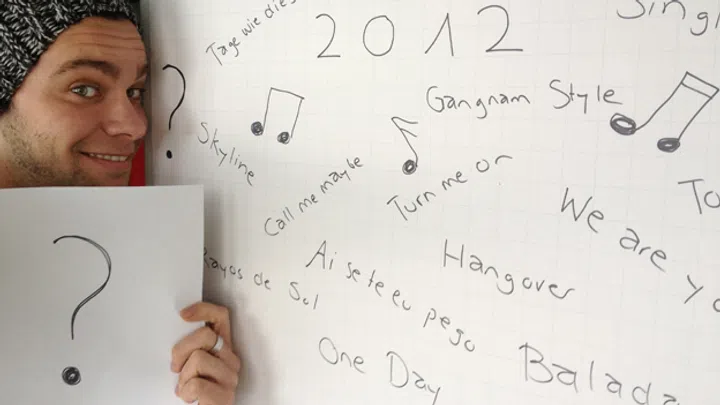 Tage wie dies
2012
Singl
?
Gangnam Style
Skyline
Call me maybe
Turn me on
To
We are yo
Rayos de Sol
Ai se te eu pego
Hangover
?
One Day
Balada